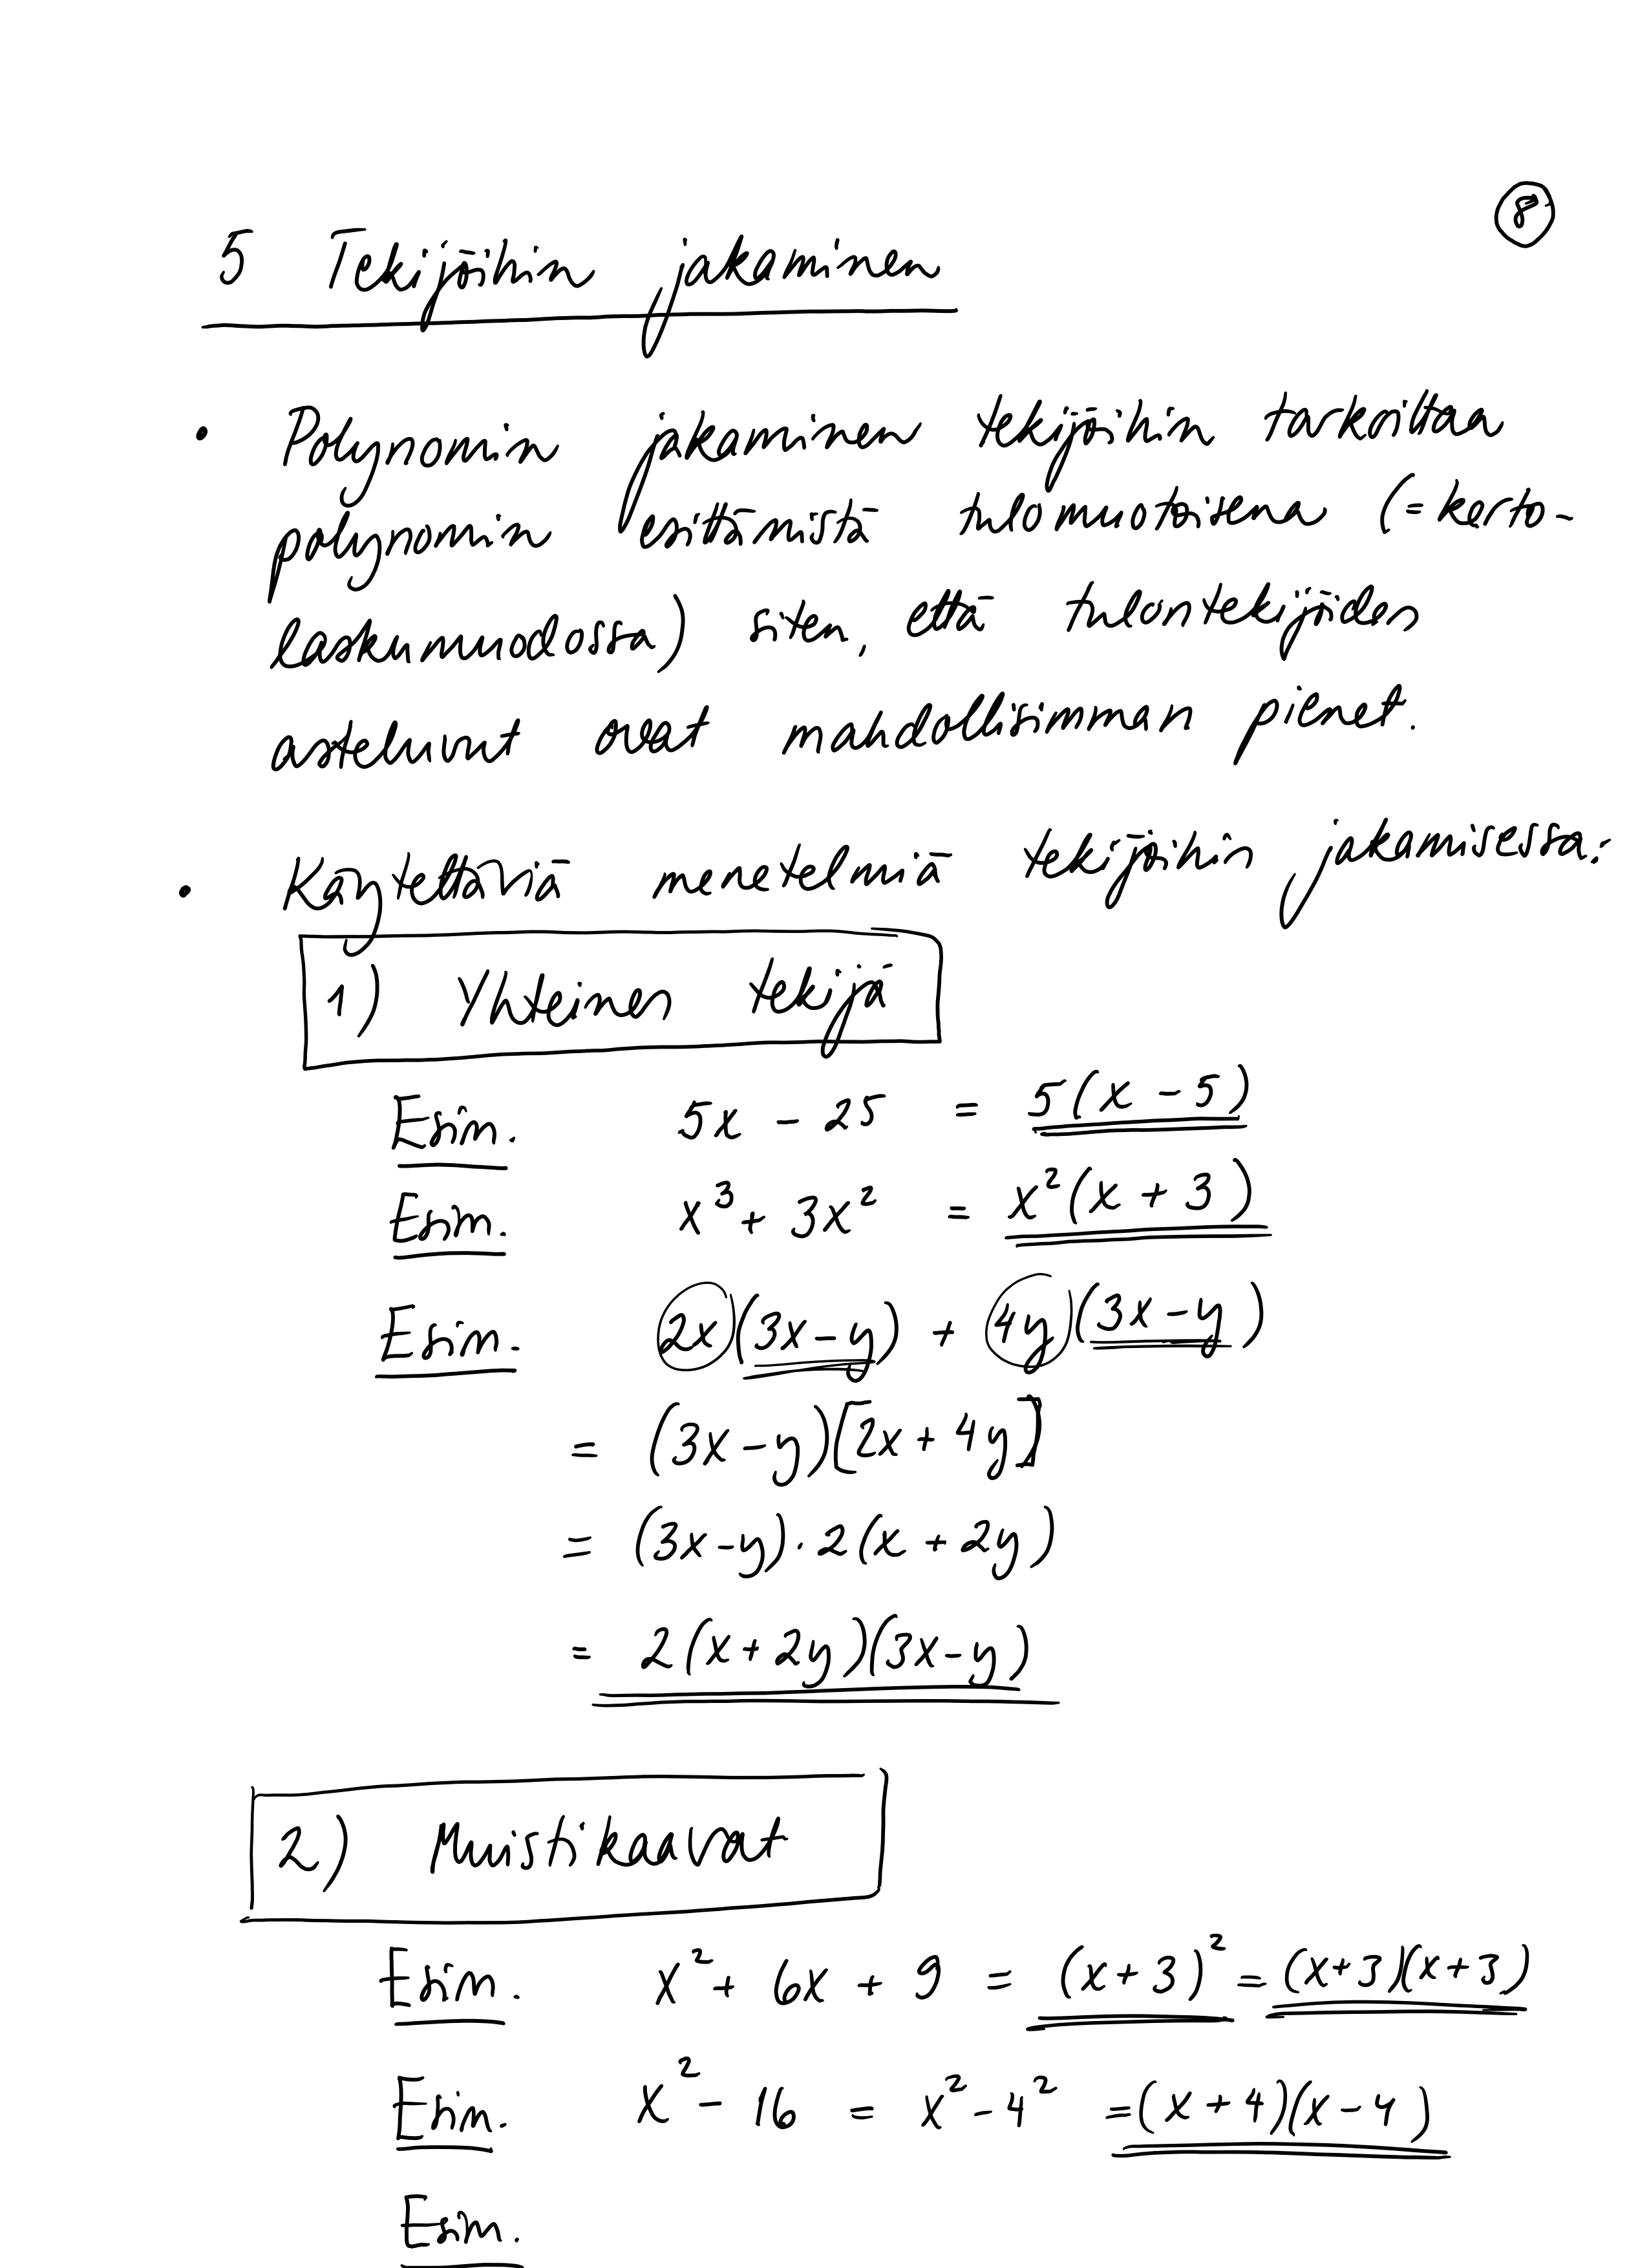 8
5 Tekijöihin jakaminen
• Polynomin jakaminen tekijöihin tarkoittaa
polynomin esittämistä tulomuotoisena (= kerto-
laskumuodossa) siten, että tulontekijöiden
asteluvut ovat mahdollisimman pienet.
• Käytettäviä menetelmiä tekijöihin jakamisessa:
1) Yhteinen tekijä
Esim. 5x - 25 = 5(x - 5)
Esim. x³ + 3x² = x²(x + 3)
Esim. 2x(3x - y) + 4y(3x - y)
= (3x - y)[2x + 4y]
= (3x - y) · 2(x + 2y)
= 2(x + 2y)(3x - y)
2) Muistikaavat
Esim. x² + 6x + 9 = (x + 3)² = (x + 3)(x + 3)
Esim. x² - 16 = x² - 4² = (x + 4)(x - 4)
Esim.